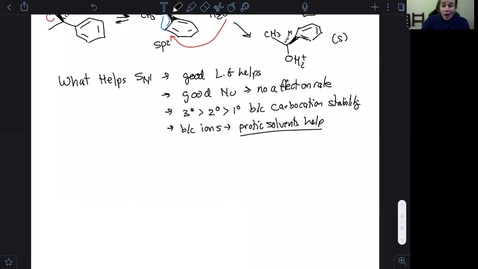 C
CH3
H2O
sp2
CH3
H
(S)
OH2+
What Helps SN1 → good L.G helps
→ good Nu → no affect on rate
→ 3° > 2° > 1° b/c carbocation stability
→ b/c ions → protic solvents help